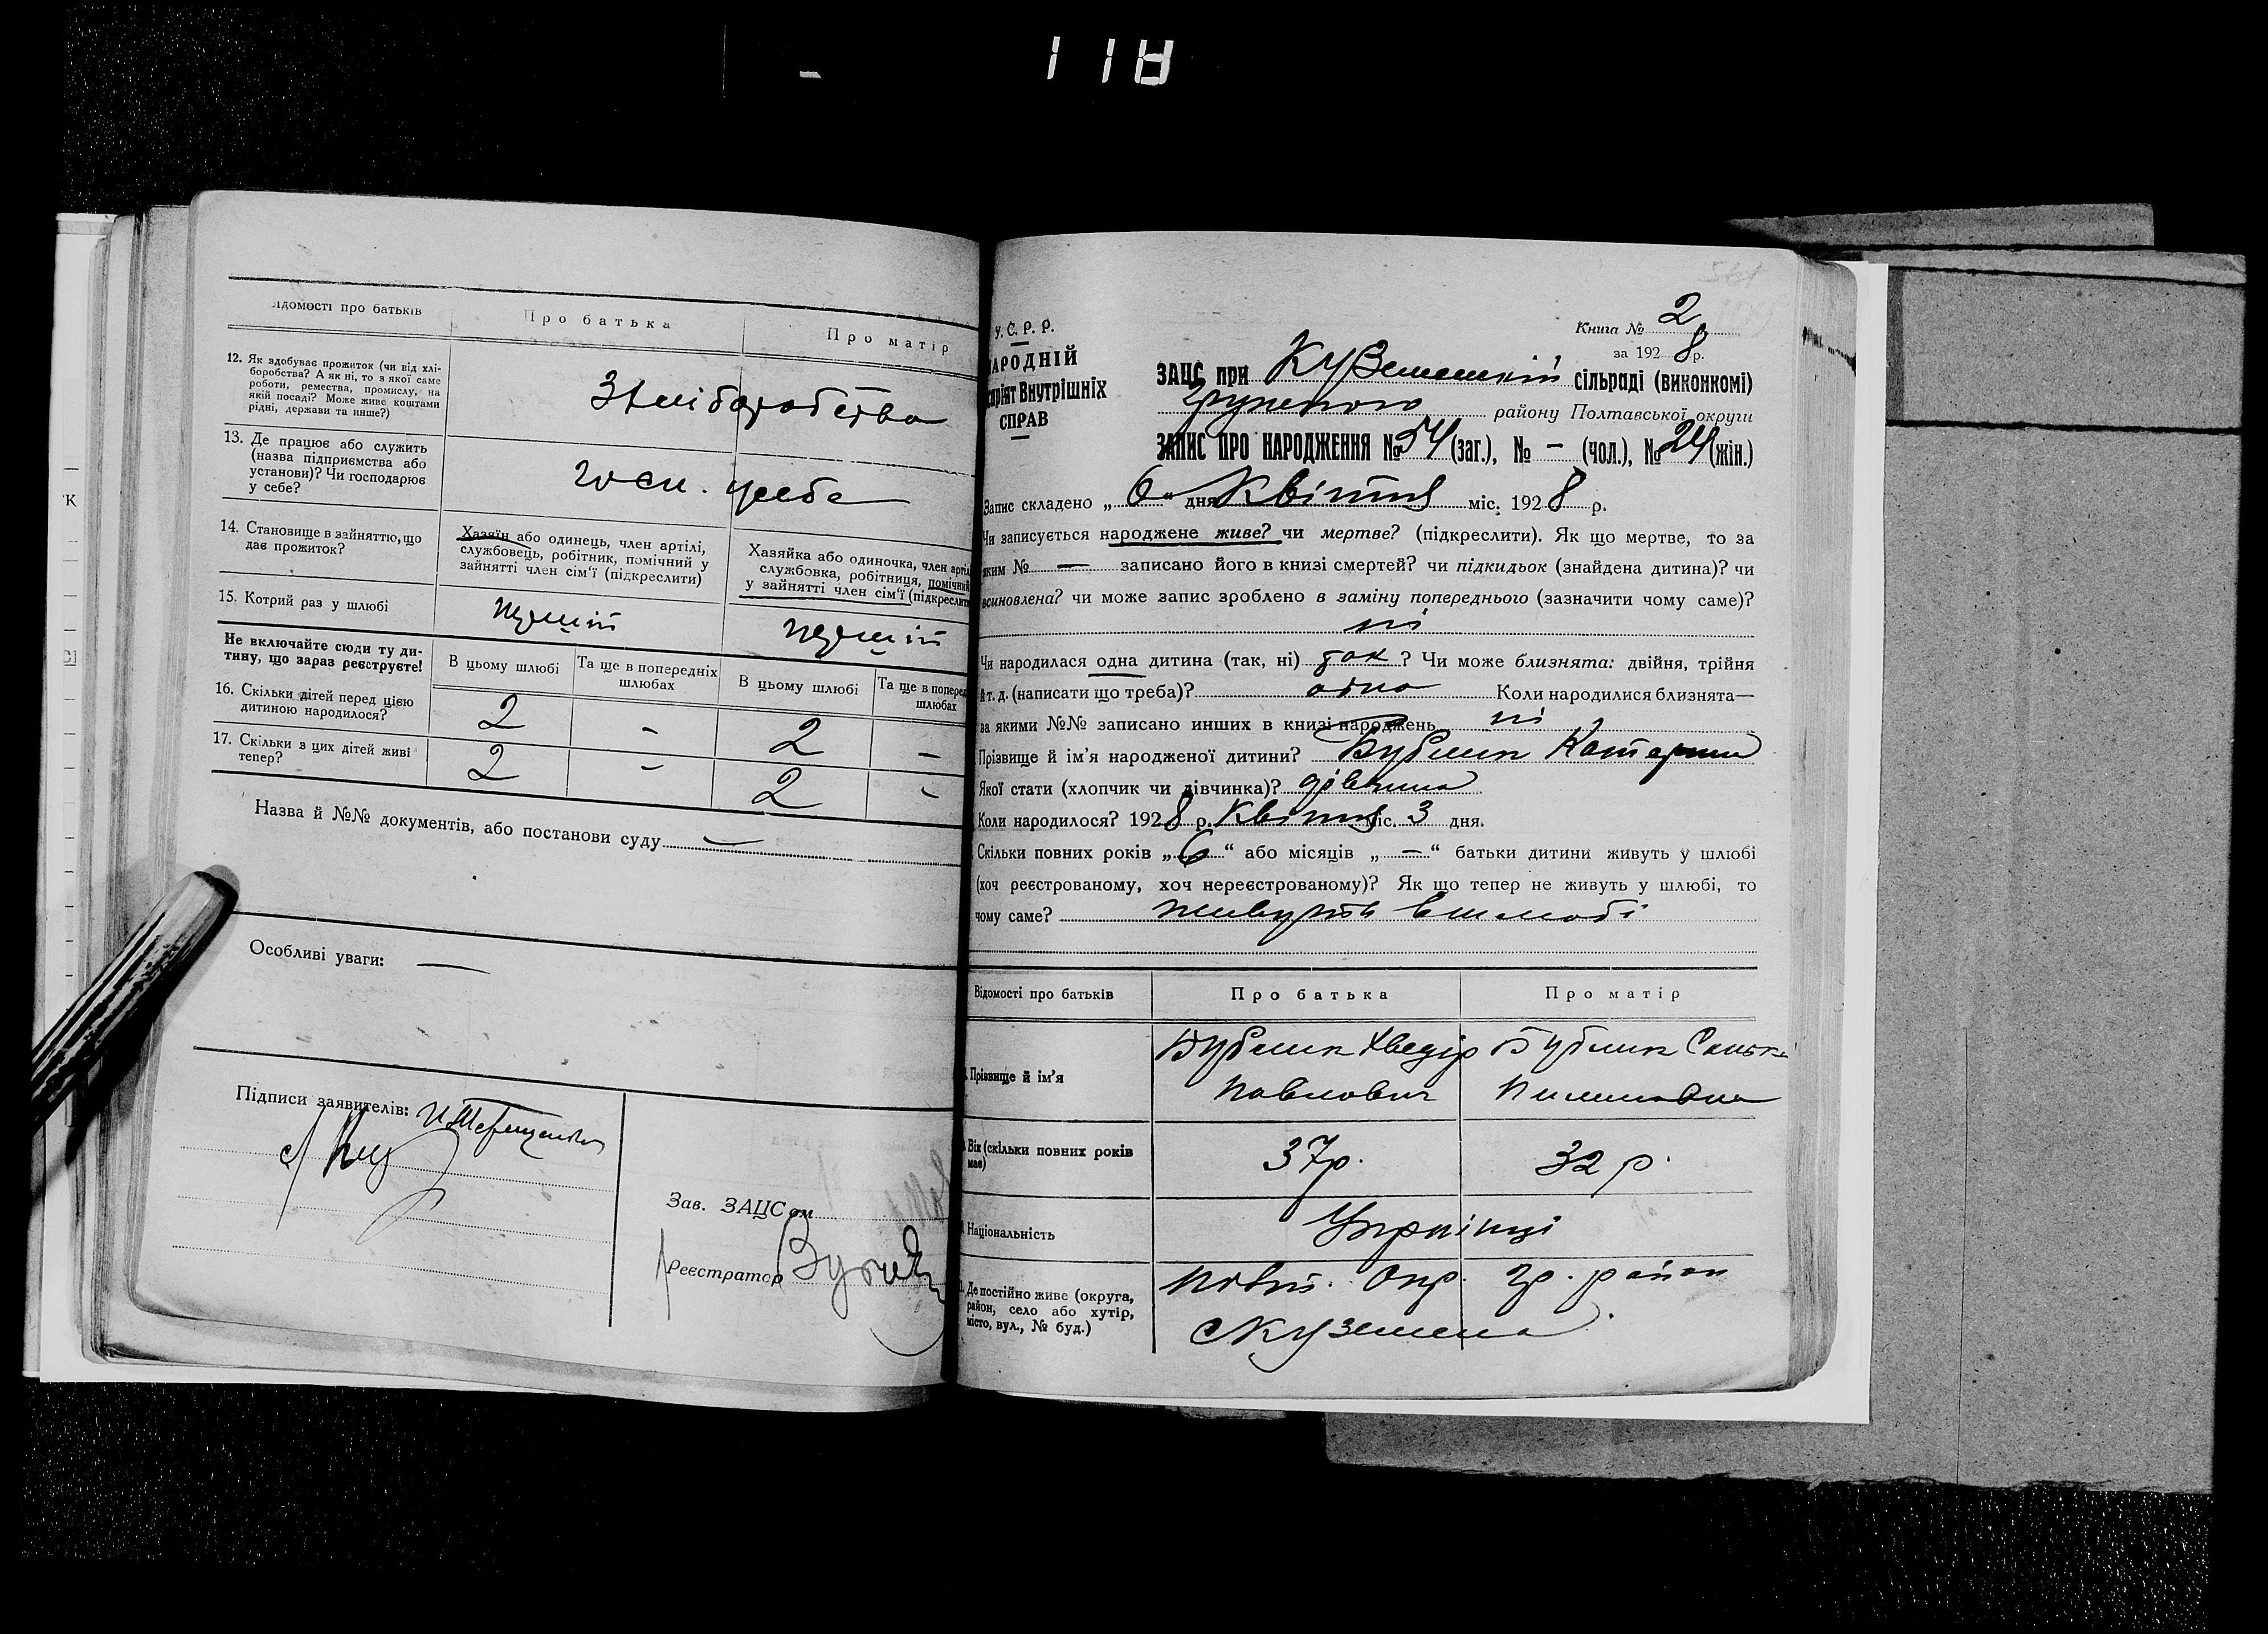 118
ідомості про батьків
Про батька
Про матір
12. Як здобуває прожиток (чи від хлі-
боробства? А як ні, то з якої саме
роботи, ремества, промислу, на
якій посаді? Може живе коштами
рідні, держави та инше?)
З хліборобства
13. Де працює або служить
(назва підприємства або
установи)? Чи господарює
у себе?
госп. у себе
14. Становище в зайняттю, що
дає прожиток?
Хазяїн або одинець, член артілі,
службовець, робітник, помічний у
зайнятті член сім'ї (підкреслити)
Хазяйка або одиночка, член артіл
службовка, робітниця, помічний
у зайнятті член сім'ї (підкреслити
15. Котрий раз у шлюбі
перший
перший
Не включайте сюди ту ди-
тину, що зараз реєструєте!
В цьому шлюбі
Та ще в попередніх
шлюбах
В цьому шлюбі
Та ще в поперед
шлюбах
16. Скільки дітей перед цією
дитиною народилося?
2 - 2 —
17. Скільки з цих дітей живі
тепер?
2 - 2 -
Назва й №№ документів, або постанови суду —
Особливі уваги: —
Підписи заявителів:
Зав. ЗАЦСом
Реєстратор
У. С. Р. Р.
АРОДНІЙ
ріят Внутрішніх
СПРАВ
Книга № 2
за 1928 р.
ЗАЦС при Куземенській сільраді (виконкомі)
Груньського району Полтавської округи
ЗАПИС ПРО НАРОДЖЕННЯ № 54 (заг.), № — (чол.), № 24 (жін.)
Запис складено „6" дня Квітня міс. 1928 р.
Чи записується народжене живе? чи мертве? (підкреслити). Як що мертве, то за
яким № — записано його в книзі смертей? чи підкидьок (знайдена дитина)? чи
всиновлена? чи може запис зроблено в заміну попереднього (зазначити чому саме)?
ні
Чи народилася одна дитина (так, ні) так? Чи може близнята: двійня, трійня
й т. д. (написати що треба)? одна Коли народилися близнята—
за якими №№ записано инших в книзі народжень ні
Прізвище й ім'я народженої дитини? Бублик Катерина
Якої стати (хлопчик чи дівчинка)? дівчина
Коли народилося? 1928 р. Квітня міс. 3 дня.
Скільки повних років „6" або місяців „—" батьки дитини живуть у шлюбі
(хоч реєстрованому, хоч нереєстрованому)? Як що тепер не живуть у шлюбі, то
чому саме? живуть в шлюбі
Відомості про батьків
Про батька
Про матір
Прізвище й ім'я
Бублик Хведір
Павлович
Бублик Санька
Пилиповна
Вік (скільки повних років
має)
37 р.
32 р.
Національність
Українці
Де постійно живе (округа,
район, село або хутір,
місто, вул., № буд.)
Полт. Окр. Гр. район
с Куземена